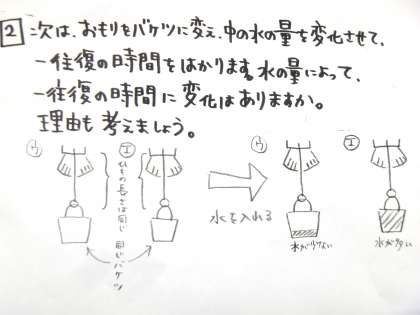 2 次は、おもりをバケツに変え、中の水の量を変化させて、
一往復の時間をはかります。水の量によって、
一往復の時間に変化はありますか。
理由も考えましょう。
ウ
エ
ひもの長さは同じ
同じバケツ
水を入れる
ウ
エ
水が少ない
水が多い